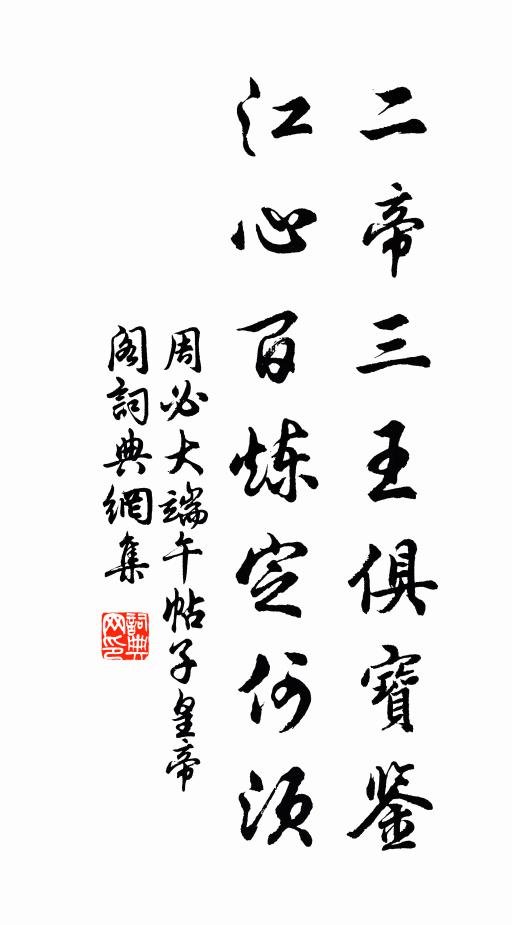 二帝三王俱寶鉴
江心百炼定何须
周必大端午帖子皇帝
阁詞典網集
詞典
网印